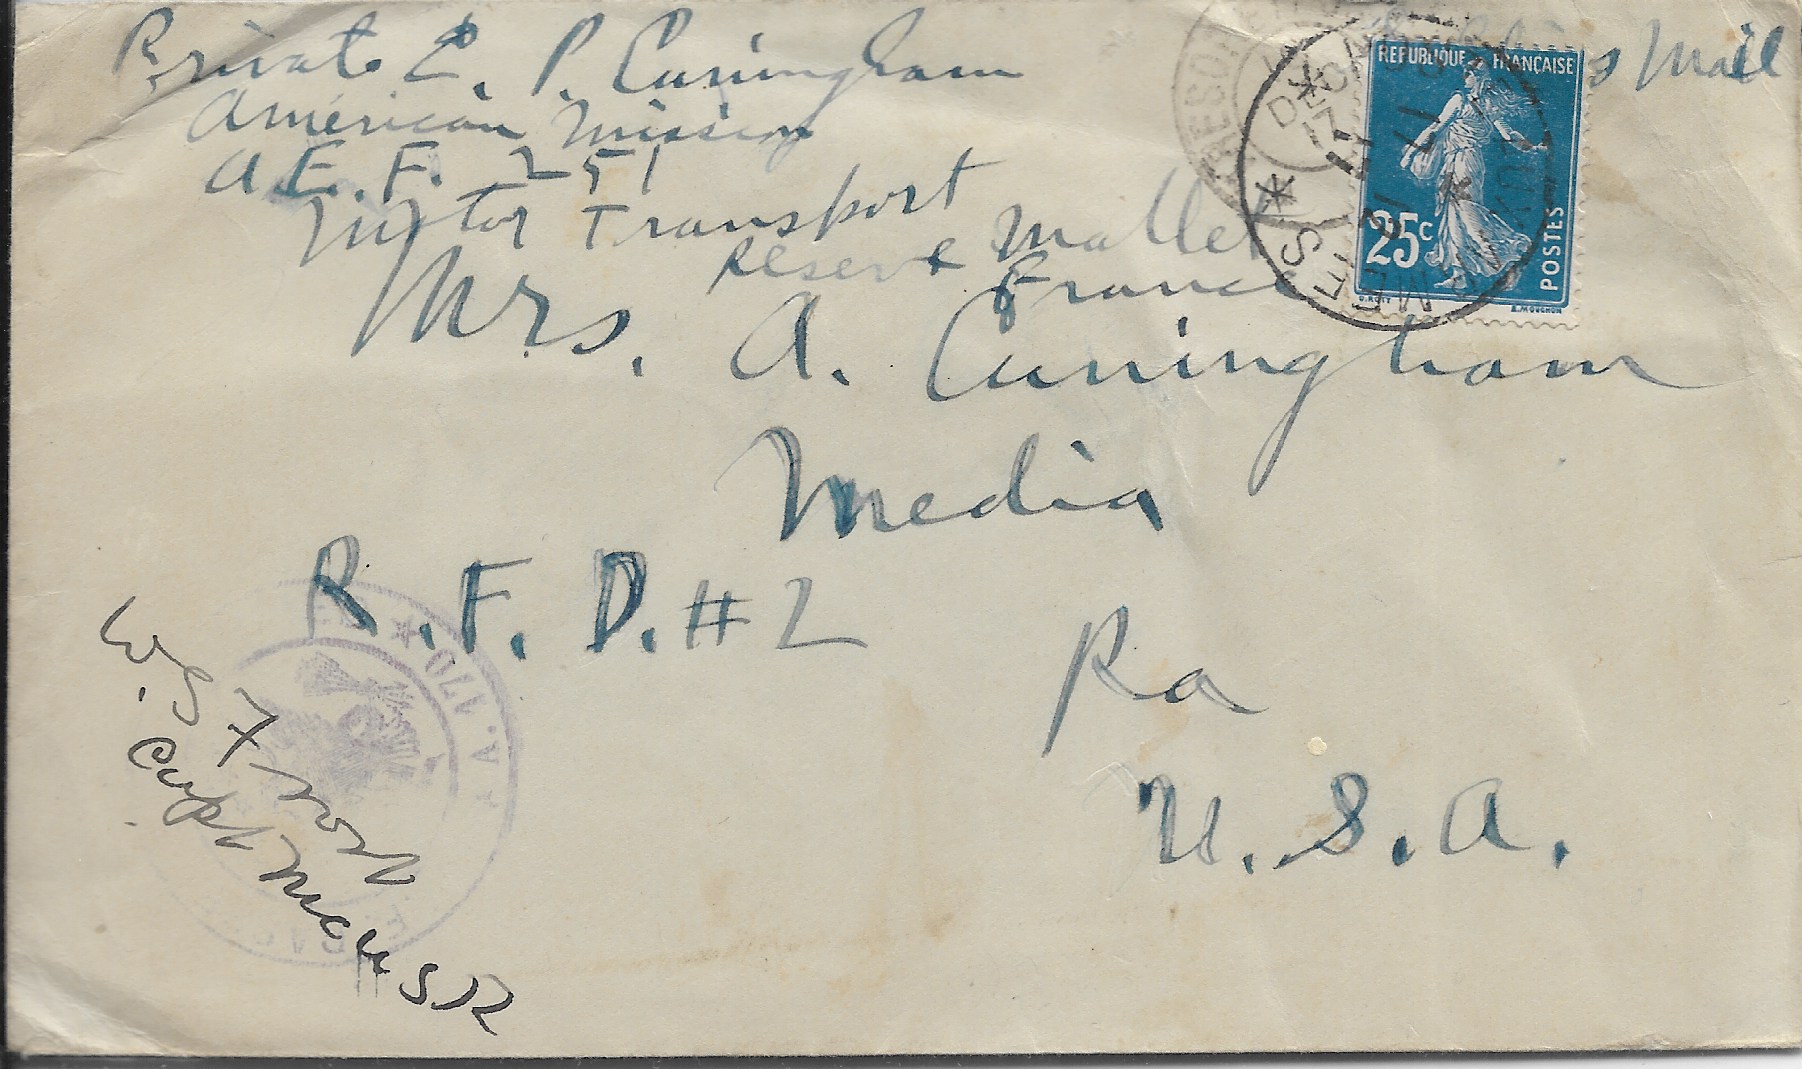 Private E. P. Cuningham
s Mail
American Mission
A.E.F. 251
Motor Transport
Reserve Mallet
France
REPUBLIQUE FRANÇAISE
25c
POSTES
O. ROTY
E. MOUCHON
Mrs. A. Cuningham
Media
R.F.D. #2
Pa
U.S.A.
W.S.
Capt MCUSR
A. 170 *